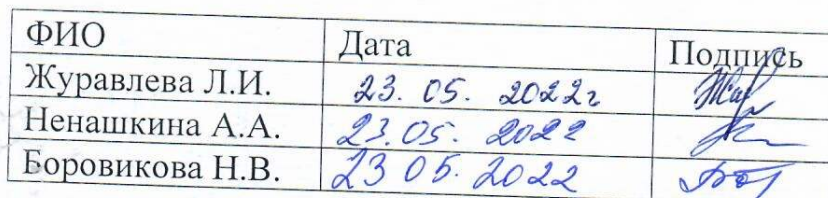 ФИО Дата Подпись
Журавлева Л.И. 23. 05. 2022г
Ненашкина А.А. 23.05. 2022
Боровикова Н.В. 23 05. 2022